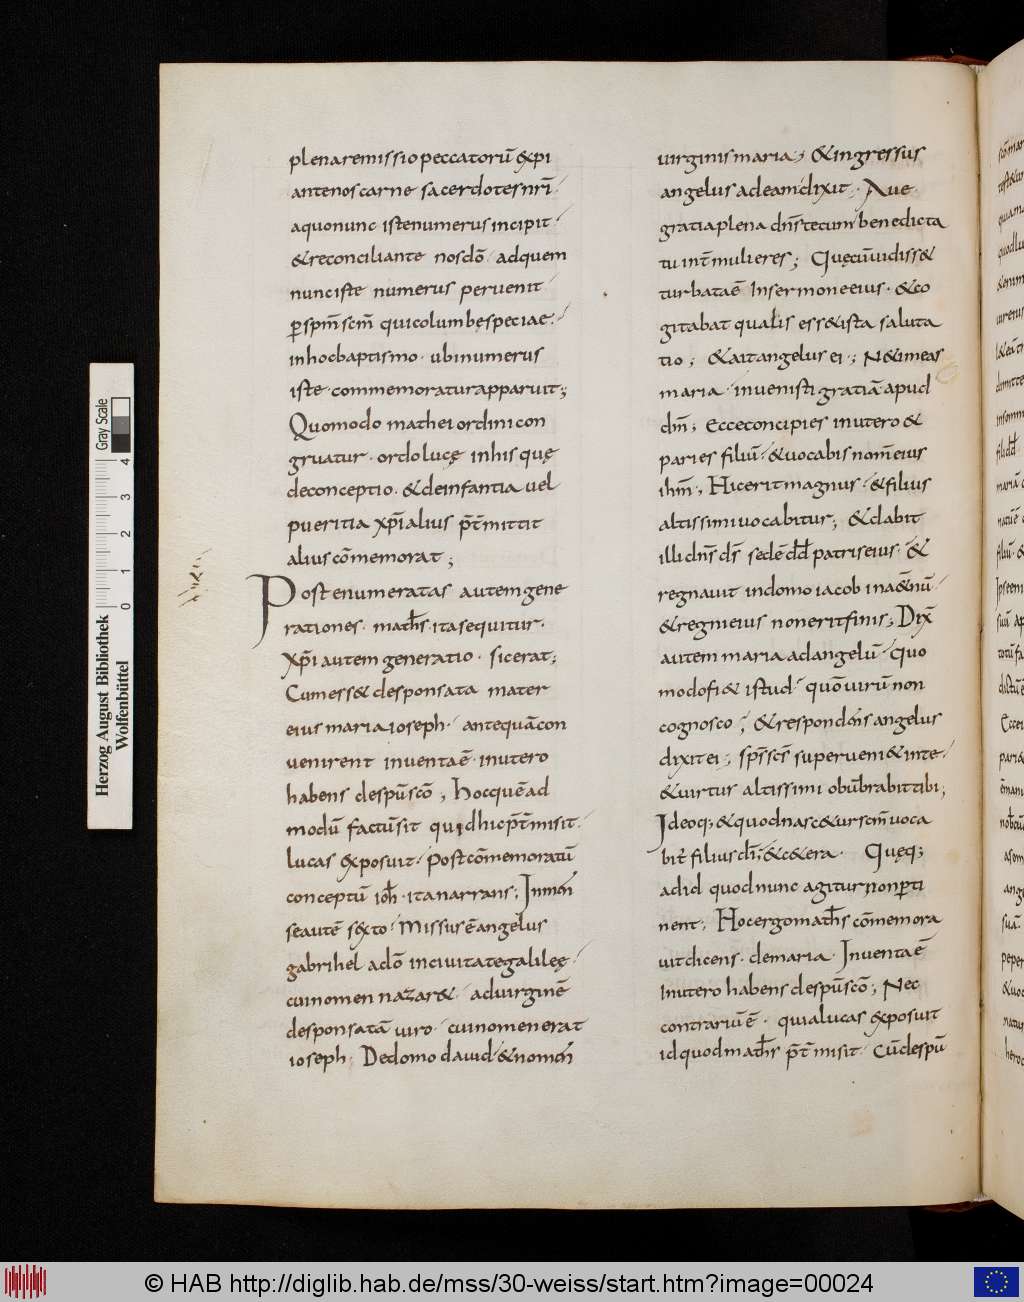 plenaremissiopeccatorū &xpi
antenoscarne sacerdotesnr̄i·
aquonunc istenumerusincipit·
&reconciliante nosdō· adquem
nunciste numerus peruenit·
ꝑsp̄m sc̄m quicolumbęspeciae·
inhocbaptismo· ubinumerus
iste·commemoraturapparuit;
Quomodo mathei ordini con
gruatur· ordolucę inhis quę
deconceptio·&deinfantia uel
pueritia xp̄i alius p̄t̄mittit
alius cōmemorat;
Post enumeratas autemgene
rationes· math̄s·itasequitur·
xp̄i autem generatio· sicerat;
Cumess& desponsata mater
eius maria ioseph· antequā con
uenirent inuentaē·inutero
habens desp̄u scō; Hocquēad
modū factūsit quidhicp̄t̄misit·
lucas exposuit· postcōmemoratū
conceptū ioh̄·itanarrans; Inmen
seautē sexto· Missusē angelus
gabrihel adō inciuitategalileę·
cuinomen nazar&· aduirginē
desponsatā uiro· cuinomenerat
ioseph; Dedomo dauid·&nomen
uirginismaria; &ingressus
angelus adeamdixit· Aue
gratiaplena dn̄stecum benedicta
tu int̄mulieres; Quęcūuidiss&
turbataē Insermoneeius·&co
gitabat qualis ess&ista saluta
tio; &aitangelus ei·; N&imeas
maria· inuenisti gratiā apud
dm̄; Ecceconcipies inutero &
paries filiū·&uocabisnom̄eius
ihm̄; Hicerit magnus·&filius
altissimiuocabitur; &dabit
illi dn̄s ds̄ sedē dd̄ patriseius·&
regnauit indomo iacob inaet̄nū·
&regnieius noneritfinis; Dix̄
autem maria adangelū· quo
modofi& istud· quō uirū non
cognosco; &respondens angelus
dixitei; sp̄s sc̄s superueni&inte·
&uirtus altissimi obūbrabittibi;
Ideoq;&quodnasc&ursc̄m uoca
bit̄ filius dī;&c&era· Quęq;
adid quodnunc agiturnonꝑti
nent; Hocergomath̄s cōmemora
uitdicens· demaria· Inuentaē
Inutero habens desp̄u scō; Nec
contrariūē· quialucas exposuit
idquodmath̄s p̄t̄misit· cūdesp̄u
Herzog August Bibliothek
Wolfenbüttel
Gray Scale
0 1 2 3 4
© HAB http://diglib.hab.de/mss/30-weiss/start.htm?image=00024